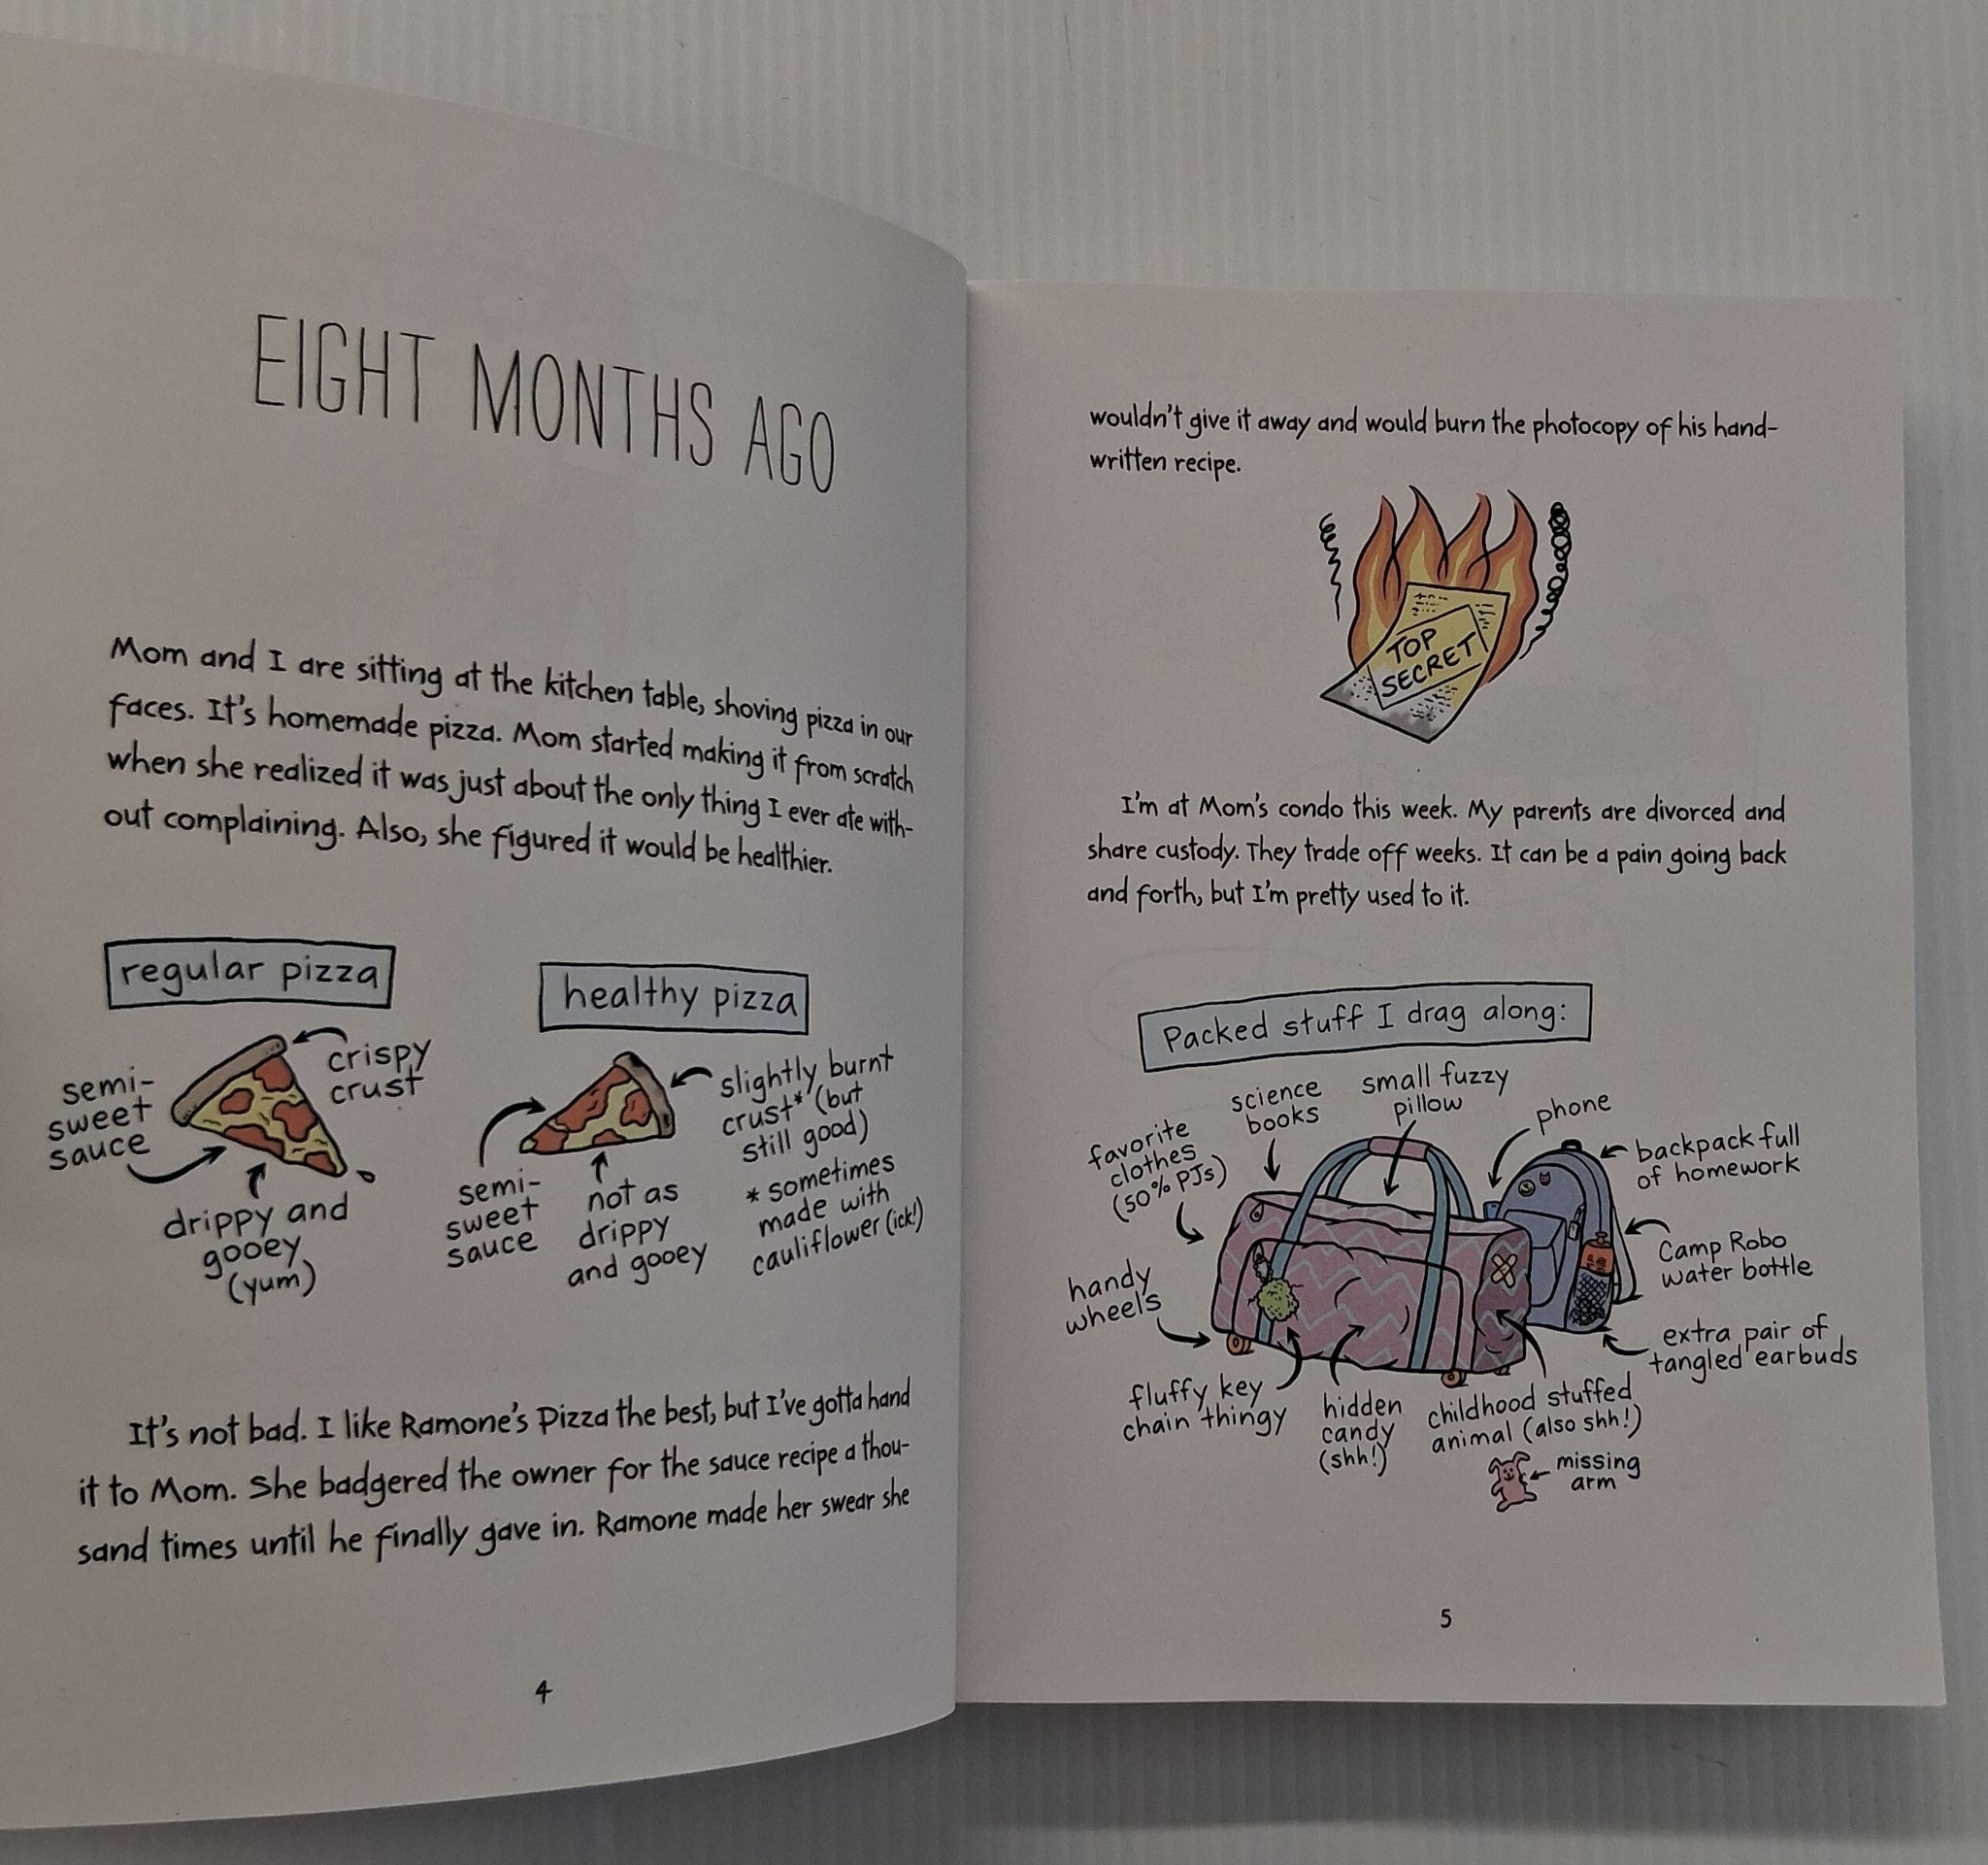 EIGHT MONTHS AGO
Mom and I are sitting at the kitchen table, shoving pizza in our
faces. It's homemade pizza. Mom started making it from scratch
when she realized it was just about the only thing I ever ate with-
out complaining. Also, she figured it would be healthier.
regular pizza
crispy
crust
semi-
sweet
sauce
drippy and
gooey
(yum)
healthy pizza
slightly burnt
crust* (but
still good)
* sometimes
made with
cauliflower (ick!)
semi-
sweet
sauce
not as
drippy
and gooey
It's not bad. I like Ramone's Pizza the best, but I've gotta hand
it to Mom. She badgered the owner for the sauce recipe a thou-
sand times until he finally gave in. Ramone made her swear she
4
wouldn't give it away and would burn the photocopy of his hand-
written recipe.
TOP
SECRET
I'm at Mom's condo this week. My parents are divorced and
share custody. They trade off weeks. It can be a pain going back
and forth, but I'm pretty used to it.
Packed stuff I drag along:
favorite
clothes
(50% PJs)
science
books
small fuzzy
pillow
phone
backpack full
of homework
Camp Robo
water bottle
extra pair of
tangled earbuds
handy
wheels
fluffy key
chain thingy
hidden
candy
(shh!)
childhood stuffed
animal (also shh!)
missing
arm
5